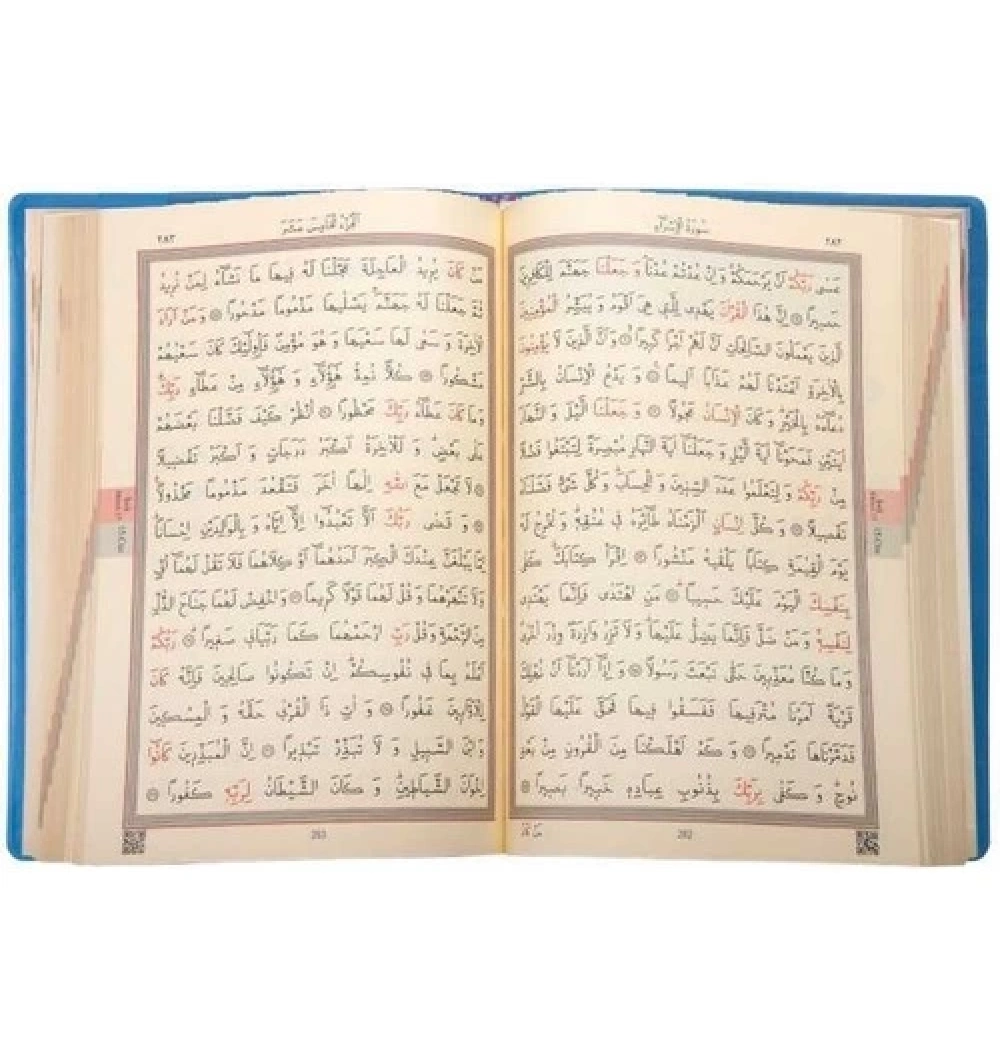 ٢٨٢
سُورَةُ الْإِسْرَاءِ
عَسٰى رَبُّكُمْ اَنْ يَرْحَمَكُمْ وَاِنْ عُدْتُمْ عُدْنَا وَجَعَلْنَا جَهَنَّمَ لِلْكَافِرِينَ
حَصِيرًا ۞ اِنَّ هٰذَا الْقُرْاٰنَ يَهْدِى لِلَّتِى هِىَ اَقْوَمُ وَ يُبَشِّرُ الْمُؤْمِنِينَ
الَّذِينَ يَعْمَلُونَ الصَّالِحَاتِ اَنَّ لَهُمْ اَجْرًا كَبِيرًا ۞ وَاَنَّ الَّذِينَ لَا يُؤْمِنُونَ
بِالْاٰخِرَةِ اَعْتَدْنَا لَهُمْ عَذَابًا اَلِيمًا ۞ وَ يَدْعُ الْاِنْسَانُ بِالشَّرِّ
دُعَاءَهُ بِالْخَيْرِ وَ كَانَ الْاِنْسَانُ عَجُولًا ۞ وَ جَعَلْنَا الَّيْلَ وَ النَّهَارَ
اٰيَتَيْنِ فَمَحَوْنَا اٰيَةَ الَّيْلِ وَ جَعَلْنَا اٰيَةَ النَّهَارِ مُبْصِرَةً لِتَبْتَغُوا فَضْلًا
مِنْ رَبِّكُمْ وَ لِتَعْلَمُوا عَدَدَ السِّنِينَ وَ الْحِسَابَ وَ كُلَّ شَىْءٍ فَصَّلْنَاهُ
تَفْصِيلًا ۞ وَ كُلَّ اِنْسَانٍ اَلْزَمْنَاهُ طَائِرَهُ فِى عُنُقِهِ وَ نُخْرِجُ لَهُ
يَوْمَ الْقِيٰمَةِ كِتَابًا يَلْقٰيهُ مَنْشُورًا ۞ اِقْرَأْ كِتَابَكَ كَفٰى
بِنَفْسِكَ الْيَوْمَ عَلَيْكَ حَسِيبًا ۞ مَنِ اهْتَدٰى فَاِنَّمَا يَهْتَدِى
لِنَفْسِهِ وَ مَنْ ضَلَّ فَاِنَّمَا يَضِلُّ عَلَيْهَا وَ لَا تَزِرُ وَازِرَةٌ وِزْرَ اُخْرٰى
وَ مَا كُنَّا مُعَذِّبِينَ حَتّٰى نَبْعَثَ رَسُولًا ۞ وَ اِذَا اَرَدْنَا اَنْ نُهْلِكَ
قَرْيَةً اَمَرْنَا مُتْرَفِيهَا فَفَسَقُوا فِيهَا فَحَقَّ عَلَيْهَا الْقَوْلُ
فَدَمَّرْنَاهَا تَدْمِيرًا ۞ وَ كَمْ اَهْلَكْنَا مِنَ الْقُرُونِ مِنْ بَعْدِ
نُوحٍ وَ كَفٰى بِرَبِّكَ بِذُنُوبِ عِبَادِهِ خَبِيرًا بَصِيرًا ۞
مَنْ كَانَ
282
اَلْجُزْءُ الْخَامِسَ عَشَرَ
٢٨٣
مَنْ كَانَ يُرِيدُ الْعَاجِلَةَ عَجَّلْنَا لَهُ فِيهَا مَا نَشَاءُ لِمَنْ نُرِيدُ
ثُمَّ جَعَلْنَا لَهُ جَهَنَّمَ يَصْلٰيهَا مَذْمُومًا مَدْحُورًا ۞ وَ مَنْ اَرَادَ
الْاٰخِرَةَ وَ سَعٰى لَهَا سَعْيَهَا وَ هُوَ مُؤْمِنٌ فَاُولٰئِكَ كَانَ سَعْيُهُمْ
مَشْكُورًا ۞ كُلًّا نُمِدُّ هٰؤُلَاءِ وَ هٰؤُلَاءِ مِنْ عَطَاءِ رَبِّكَ
وَمَا كَانَ عَطَاءُ رَبِّكَ مَحْظُورًا ۞ اُنْظُرْ كَيْفَ فَضَّلْنَا بَعْضَهُمْ
عَلٰى بَعْضٍ وَ لَلْاٰخِرَةُ اَكْبَرُ دَرَجَاتٍ وَ اَكْبَرُ تَفْضِيلًا
۞ لَا تَجْعَلْ مَعَ اللّٰهِ اِلٰهًا اٰخَرَ فَتَقْعُدَ مَذْمُومًا مَخْذُولًا
۞ وَ قَضٰى رَبُّكَ اَلَّا تَعْبُدُوا اِلَّا اِيَّاهُ وَ بِالْوَالِدَيْنِ اِحْسَانًا
اِمَّا يَبْلُغَنَّ عِنْدَكَ الْكِبَرَ اَحَدُهُمَا اَوْ كِلَاهُمَا فَلَا تَقُلْ لَهُمَا اُفٍّ
وَلَا تَنْهَرْهُمَا وَ قُلْ لَهُمَا قَوْلًا كَرِيمًا ۞ وَاخْفِضْ لَهُمَا جَنَاحَ الذُّلِّ
مِنَ الرَّحْمَةِ وَقُلْ رَبِّ ارْحَمْهُمَا كَمَا رَبَّيَانِى صَغِيرًا ۞ رَبُّكُمْ
اَعْلَمُ بِمَا فِى نُفُوسِكُمْ اِنْ تَكُونُوا صَالِحِينَ فَاِنَّهُ كَانَ
لِلْاَوَّابِينَ غَفُورًا ۞ وَ اٰتِ ذَا الْقُرْبٰى حَقَّهُ وَ الْمِسْكِينَ
وَابْنَ السَّبِيلِ وَ لَا تُبَذِّرْ تَبْذِيرًا ۞ اِنَّ الْمُبَذِّرِينَ كَانُوا
اِخْوَانَ الشَّيَاطِينِ وَ كَانَ الشَّيْطَانُ لِرَبِّهِ كَفُورًا ۞
283